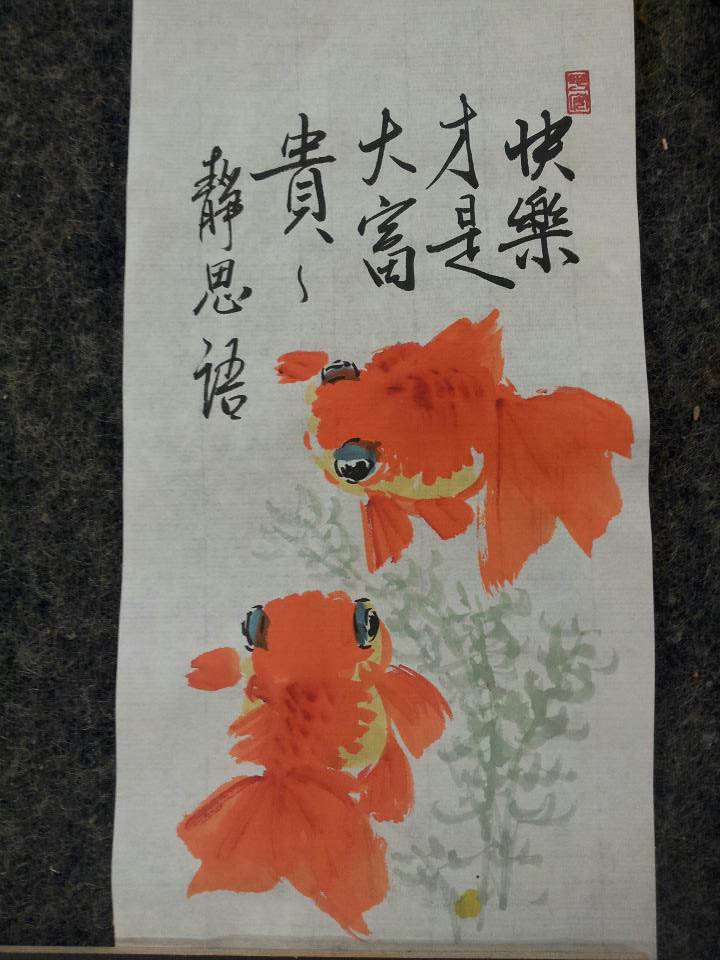 快樂
才是
大富
貴~
靜思語